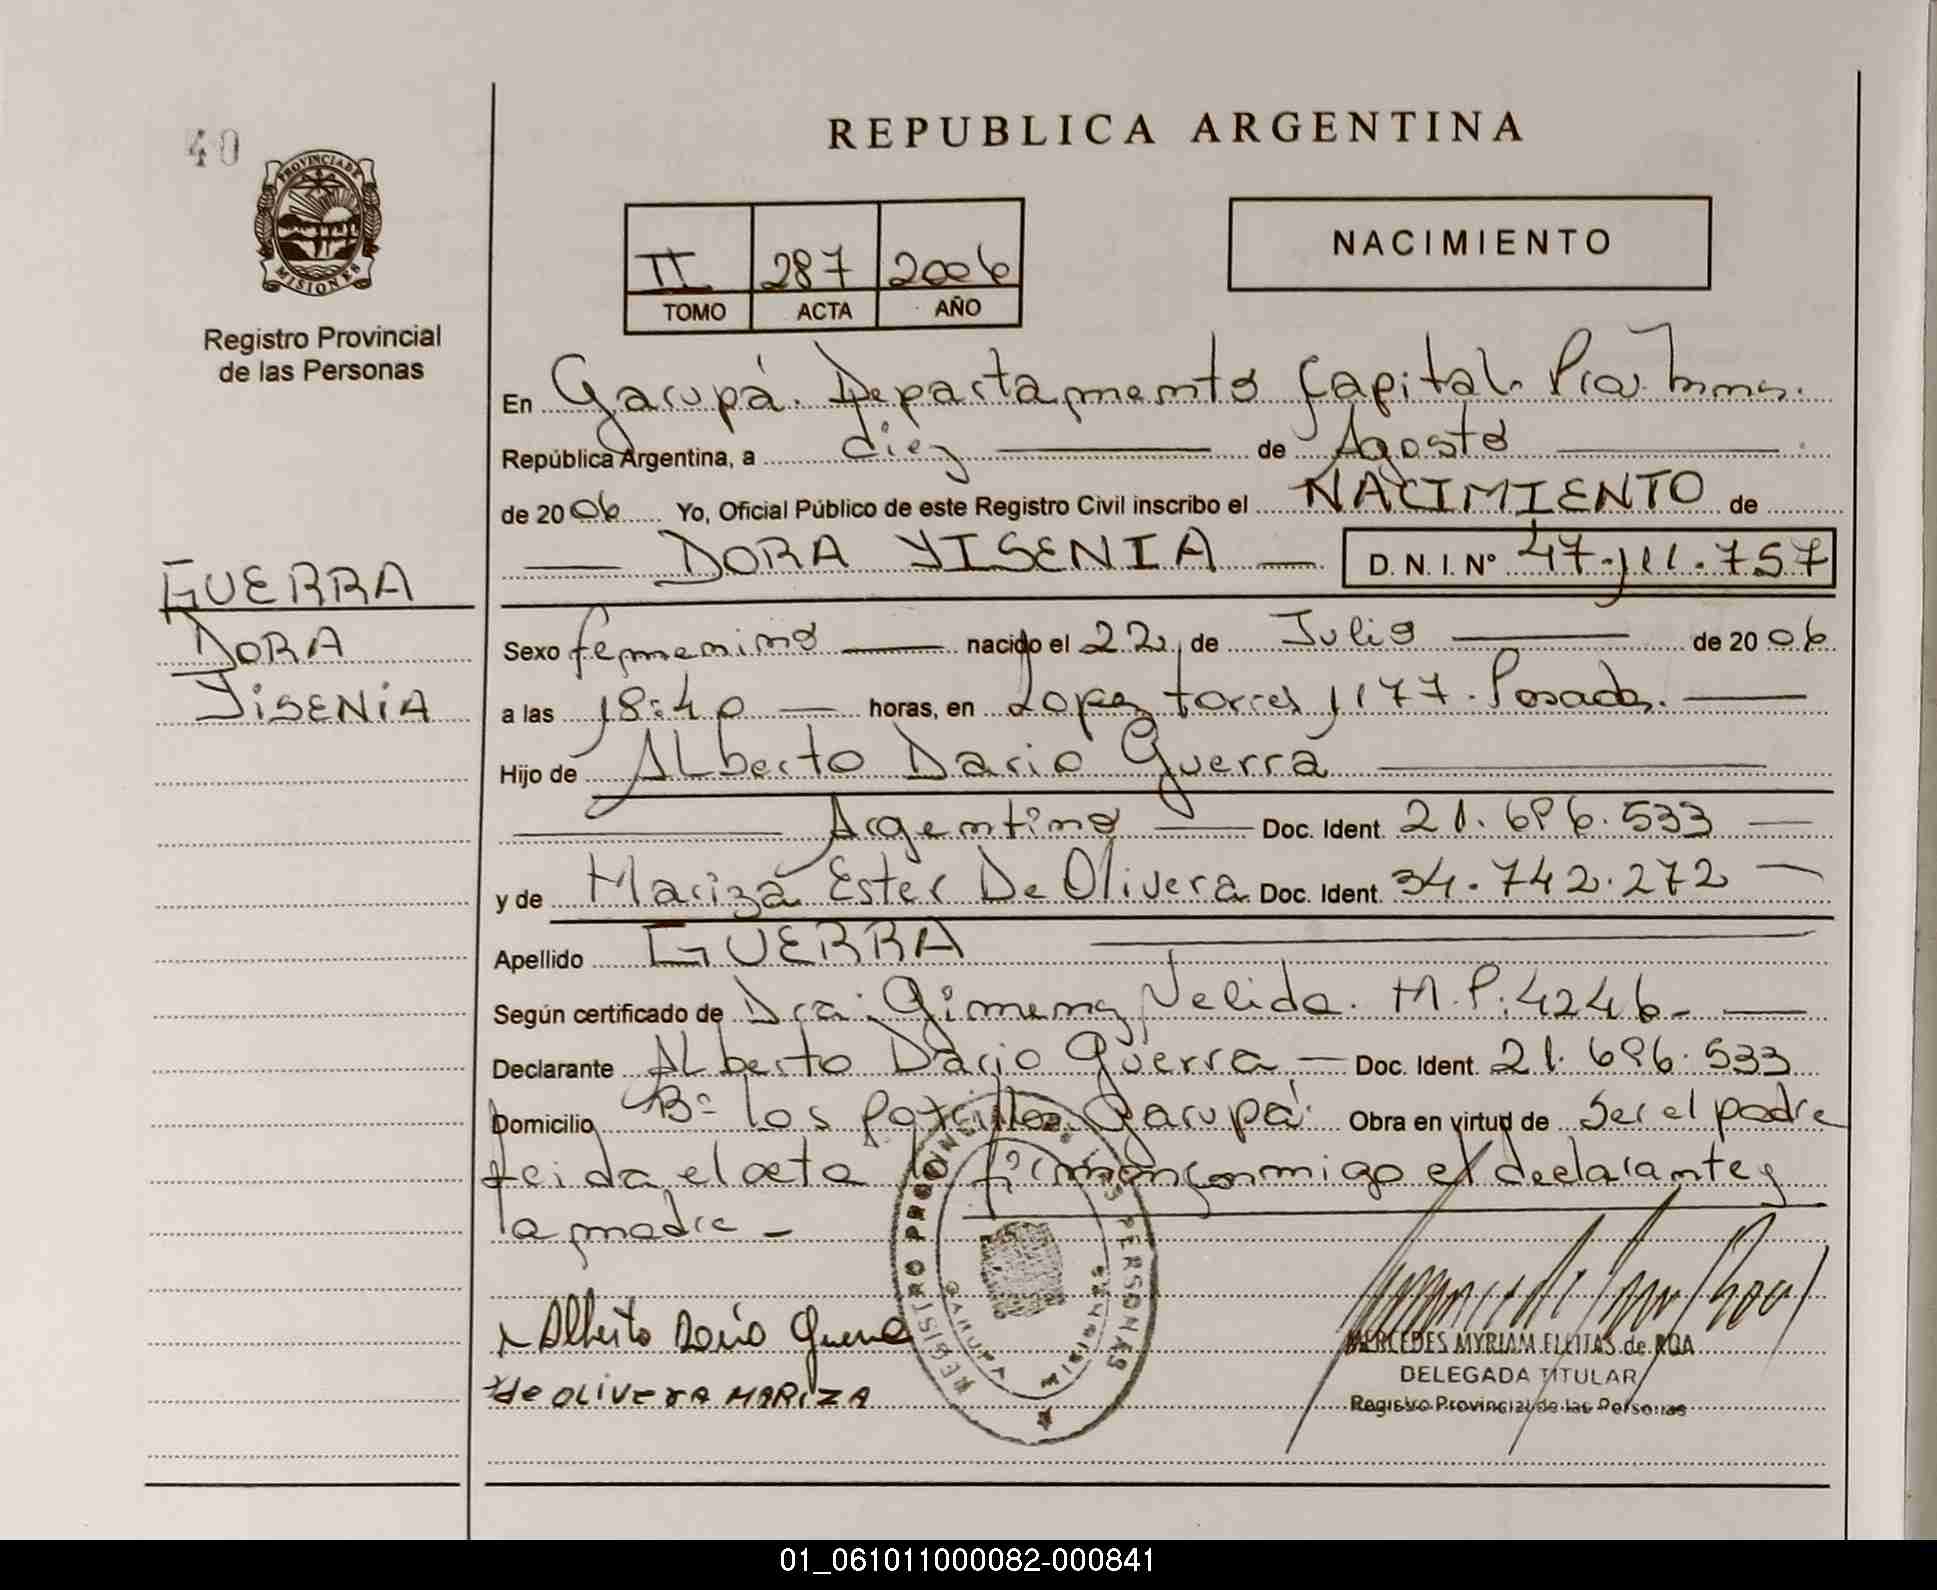 40
PROVINCIA DE
MISIONES
Registro Provincial
de las Personas
REPUBLICA ARGENTINA
II 287 2006
TOMO ACTA AÑO
NACIMIENTO
En Garupá. Departamento Capital. Pcia. Mnes.
República Argentina, a diez de Agosto
de 2006 Yo, Oficial Público de este Registro Civil inscribo el NACIMIENTO de
DORA YISENIA D.N.I. Nº 47.111.757
GUERRA
DORA
YISENIA
Sexo femenino nacido el 22 de Julio de 2006
a las 18:40 horas, en Lopez torres 1177. Posadas.
Hijo de Alberto Dario Guerra
Argentino Doc. Ident 21.696.533
y de Mariza Ester De Olivera Doc. Ident. 34.742.272
Apellido GUERRA
Según certificado de Dra. Gimenez Nelida. M.P. 4246-
Declarante Alberto Dario Guerra Doc. Ident. 21.696.533
Domicilio Bº Los Potrillos Garupá Obra en virtud de ser el padre
leida el acta la firman conmigo el declarante y
la madre -
REGISTRO PROVINCIAL DE LAS PERSONAS
GARUPA MISIONES
Alberto Dario Guerra
de OLIVERA MARIZA
MERCEDES MYRIAM ELEITAS de ROA
DELEGADA TITULAR
Registro Provincial de las Personas
01_061011000082-000841